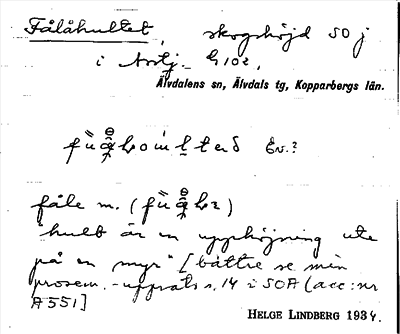 Fålåhultet, skogshöjd SO j
i Nvlj. - G 102,
Älvdalens sn, Älvdals tg, Kopparbergs län.
Ev.?
fåle m. (
"hult är en upphöjning ute
på en myr" [bättre se min
prosem. - uppsats s. 14 i SOA (acc: nr
A 551]
HELGE LINDBERG 1934.